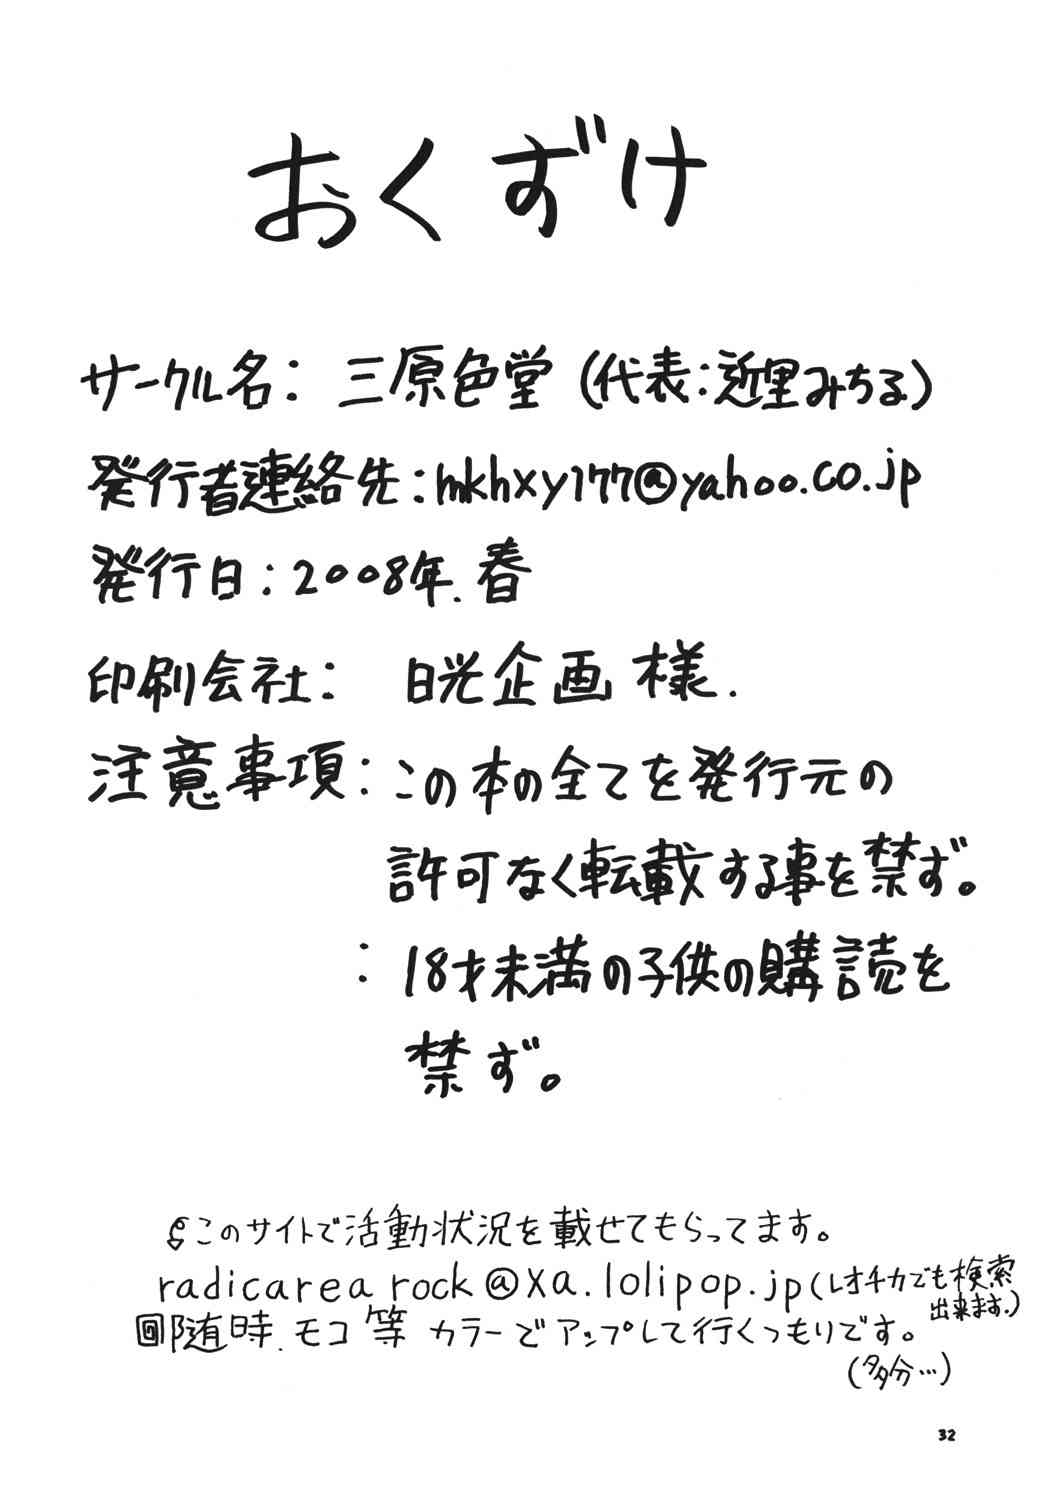 おくずけ
サークル名： 三原色堂 (代表：近里みちる)
発行者連絡先：mkhxy177@yahoo.co.jp
発行日：2008年.春
印刷会社： 日光企画 様.
注意事項：この本の全てを発行元の
許可なく転載する事を禁ず。
：18才未満の子供の購読を
禁ず。
このサイトで活動状況を載せてもらってます。
radicarea rock@xa.lolipop.jp(レオチカでも検索
出来ます.)
随時.モコ等 カラーでアップして行くつもりです。
(多分…)
32